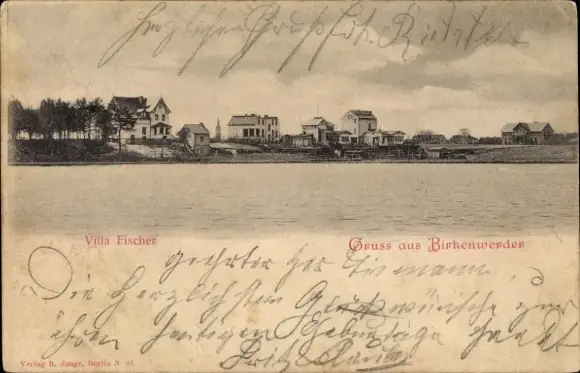 Herzlichen Gruß Fr. Richter
Villa Fischer
Gruss aus Birkenwerder
geehrter Her Eismann
Die herzlichsten Glückwünsche zu
ihrem heutigen Geburtstage sendet
Fritz
Verlag R. Junge, Berlin N 24